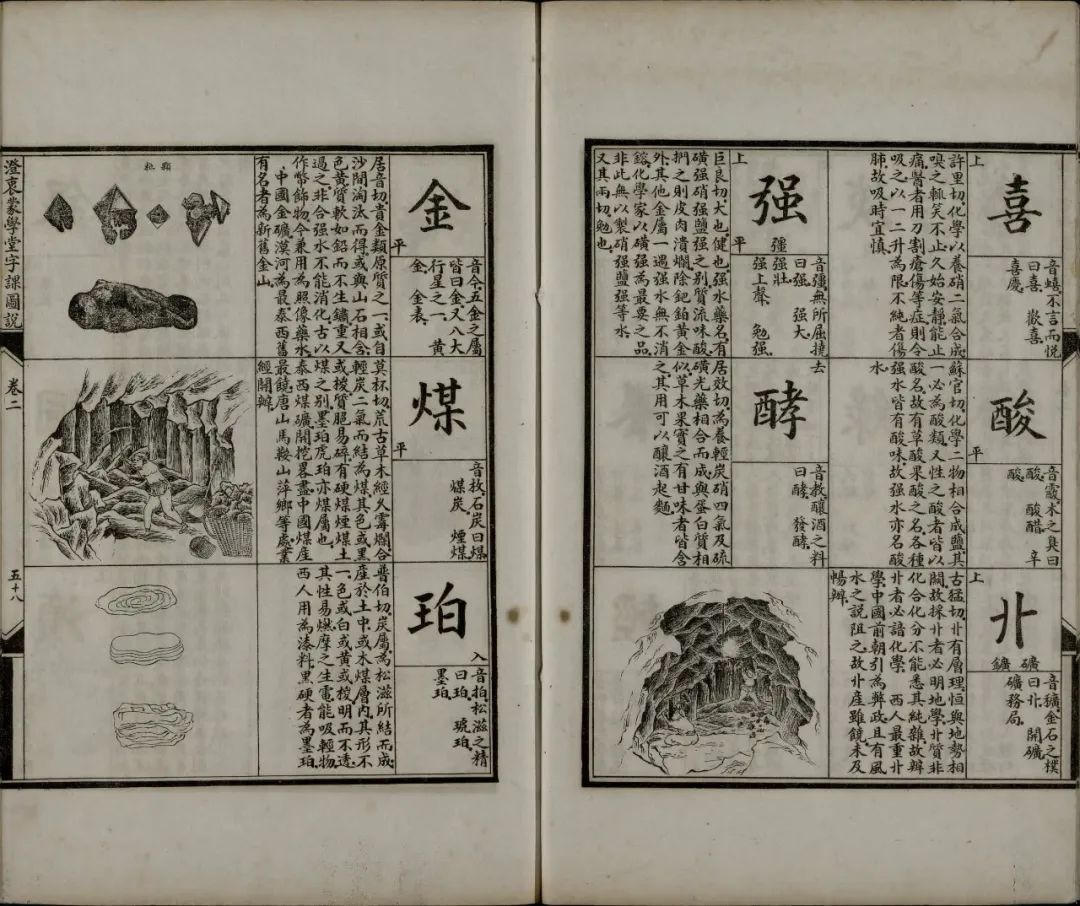 上
喜
音蟢不言而悅
曰喜 歡喜
喜慶
許里切化學以養硝二氣合成
嗅之輒笑不止久始安靜能止
痛醫者用刀割瘡傷等症則令
吸之以一二升為限不純者傷
肺故吸時宜慎
酸
平
木之臭曰
酸 酸醋 辛
酸
蘇官切化學二物相合成鹽其
一必為酸類又性之酸者皆以
酸名故有草酸果酸之名各種
强水皆有酸味故强水亦名酸
水
上
卝
礦 鑛
音獷金石之樸
曰卝 開礦
礦務局
古猛切卝有層理恒與地勢相
關故採卝者必明地學卝質非
化合化分不能悉其純雜故辦
卝者必諳化學 西人最重卝
學中國前朝引為弊政且有風
水之說阻之故卝產雖饒未及
暢辦
上
强
平
彊
音彊無所屈撓
曰强 强大
强壯
强上聲 勉强
巨良切大也健也强水藥名有
磺强硝强鹽强之別質流味酸
捫之則皮肉潰爛除鈀鉑黃金
外其他金屬一遇强水無不消
鎔化學家以磺强為最要之品
非此無以製硝强鹽强等水
又其兩切勉也
去
酵
音教釀酒之料
曰酵 發酵
居效切為養輕炭硝四氣及硫
磺光藥相合而成與蛋白質相
似草木果實之有甘味者皆含
之其用可以釀酒起麵
金
平
音今五金之屬
皆曰金又八大
行星之一 黃
金 金表
居音切貴金類原質之一或自
沙開淘汰而得或與山石相含
色黃質軟如鉛而不生鏽重又
過之非合强水不能消化古以
作幣飾物今兼用為照像藥水
中國金礦漠河為最泰西舊
有名者為新舊金山
煤
平
音枚石炭曰煤
煤炭 煙煤
莫杯切荒古草木經久霉爛合
輕炭二氣而結為煤其色或黑
或椶質脆易碎有硬煤煙煤土
煤之別墨珀虎珀亦煤屬也
泰西煤礦開挖畧盡中國煤產
最饒唐山馬鞍山萍鄉等處業
經開辦
珀
入
音拍松滋之精
曰珀 琥珀
墨珀
普伯切炭屬為松滋所結而成
產於土中或木煤層內其形不
一色或白或黃或椶明而不透
其性易燃摩之生電能吸輕物
西人用為漆料黑硬者為墨珀
顆粒
澄衷蒙學堂字課圖說
卷二
五十八